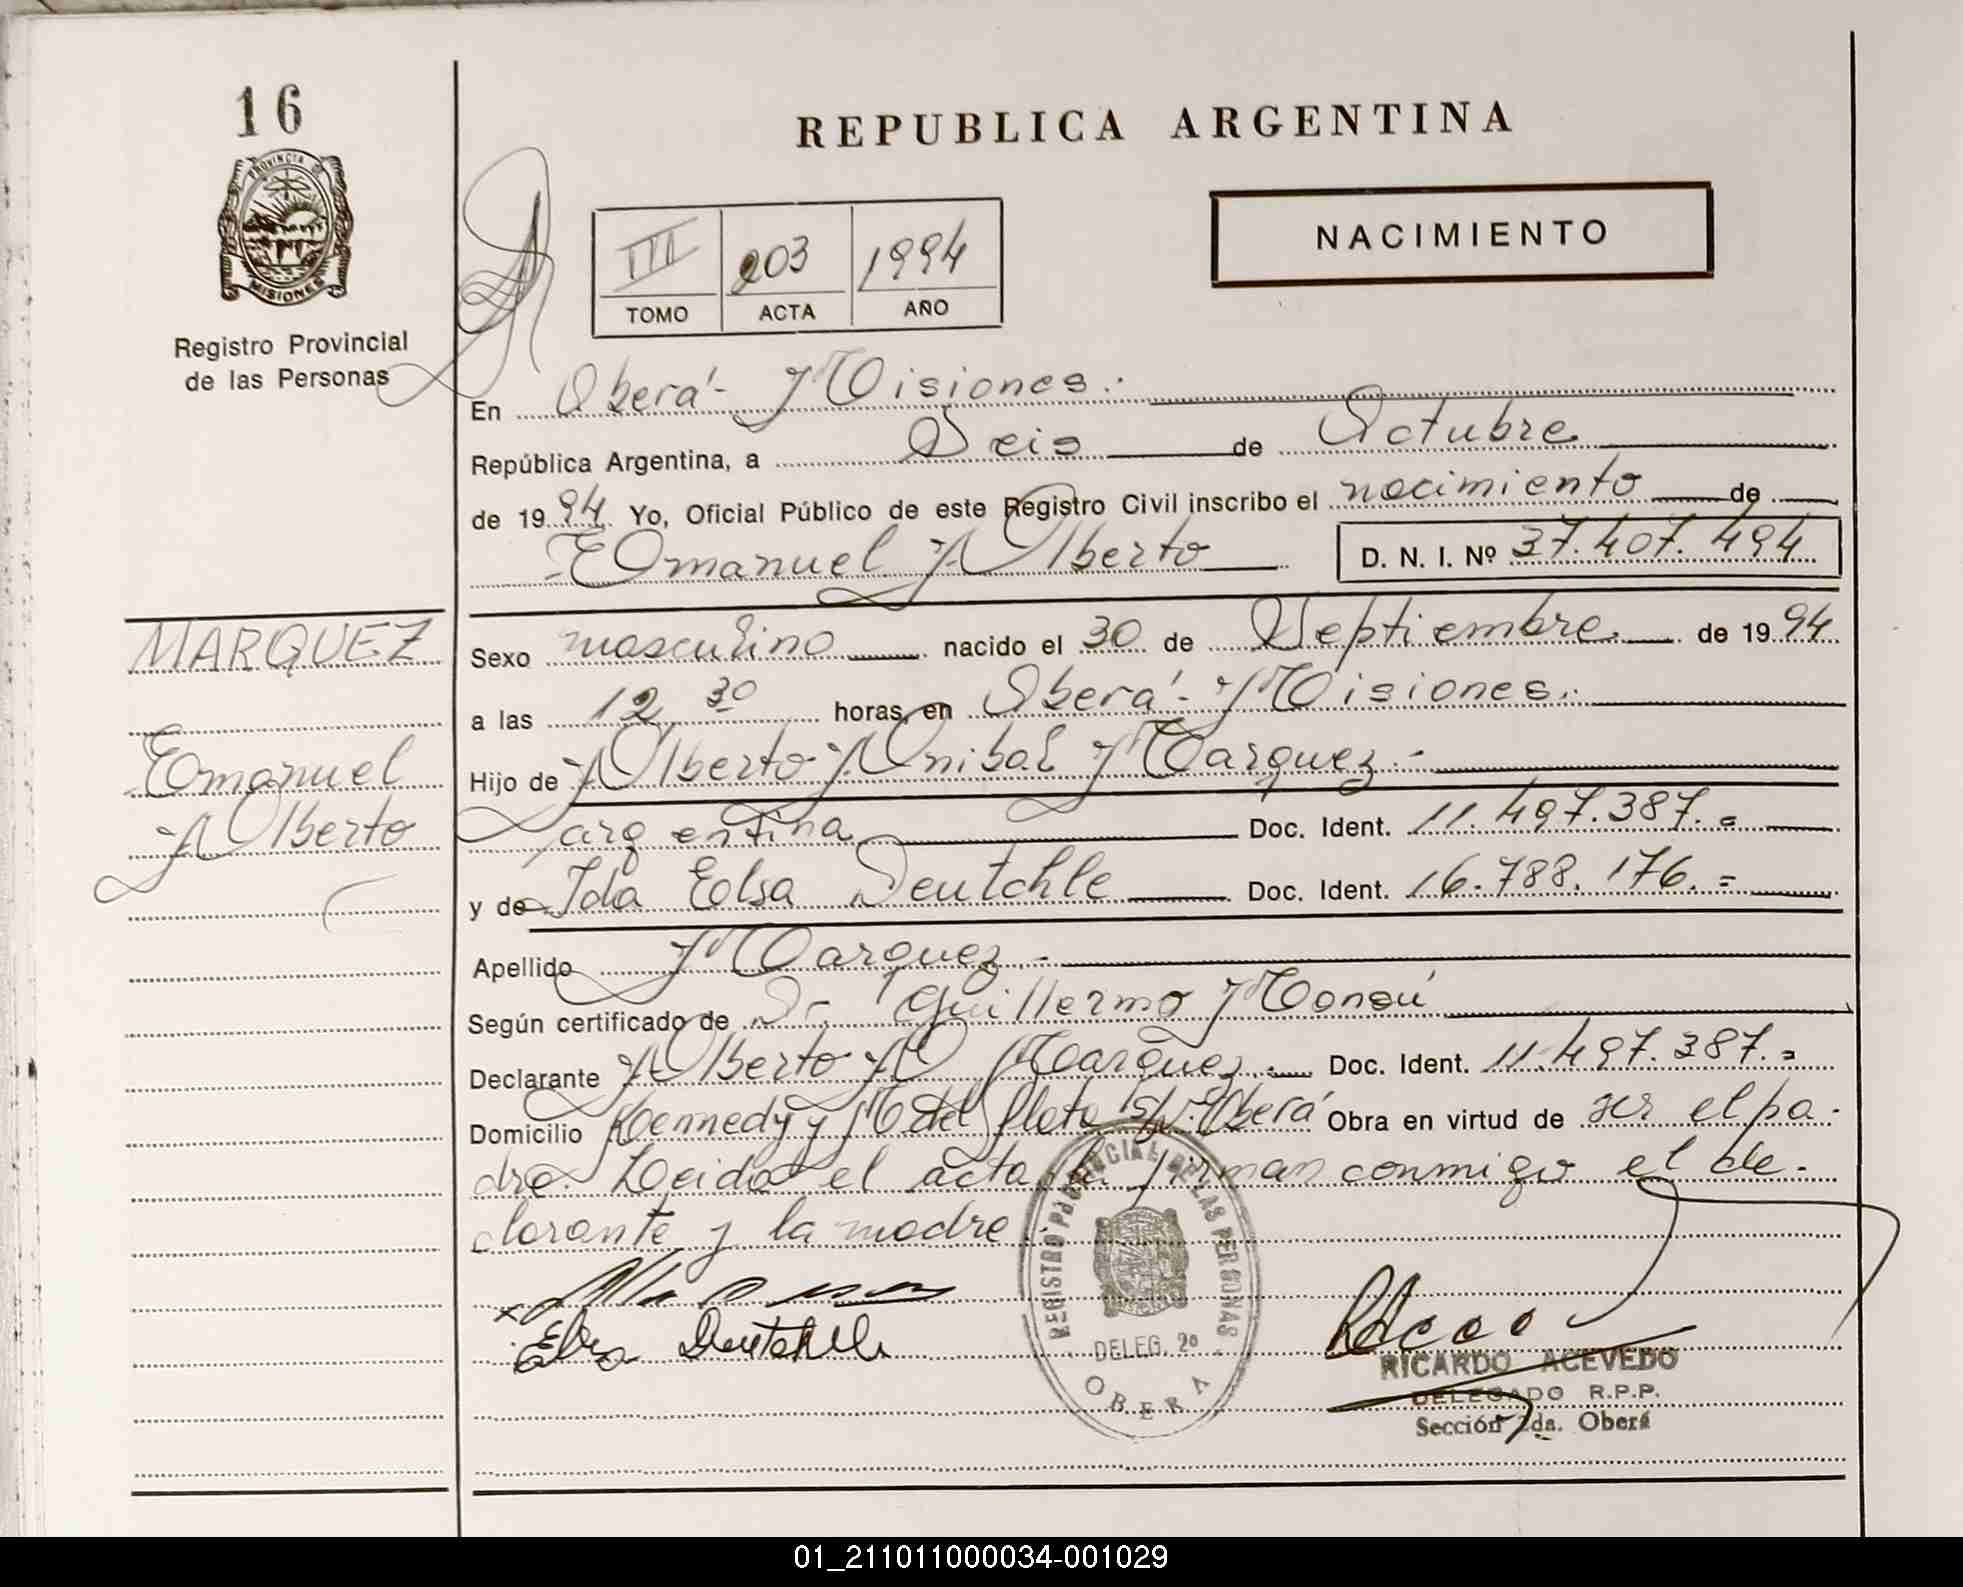 16
PROVINCIA DE
MISIONES
Registro Provincial
de las Personas
REPUBLICA ARGENTINA
NACIMIENTO
III 203 1994
TOMO ACTA AÑO
En Oberá - Misiones.-
República Argentina, a Seis de Octubre
de 1994 Yo, Oficial Público de este Registro Civil inscribo el nacimiento de
Emanuel Alberto D. N. I. Nº 37.407.494
MARQUEZ
Emanuel
Alberto
Sexo masculino nacido el 30 de Septiembre. de 1994
a las 12 30 horas, en Oberá - Misiones.-
Hijo de Alberto Anibal Marquez.-
argentina Doc. Ident. 11.497.387.=
y de Ida Elsa Deutchle Doc. Ident. 16.788.176.=
Apellido Marquez.-
Según certificado de Dr. Guillermo
Declarante Alberto A Marquez.- Doc. Ident. 11.497.387.=
Domicilio Kennedy y M del Plata s/nº Oberá Obra en virtud de ser el pa-
dre. Leida el acta la firman conmigo el de-
clarante y la madre.-
Elsa Deutchle
REGISTRO PROVINCIAL DE LAS PERSONAS
DELEG. 2º
OBERA
RICARDO ACEVEDO
DELEGADO R.P.P.
Sección 2da. Oberá
01_211011000034-001029